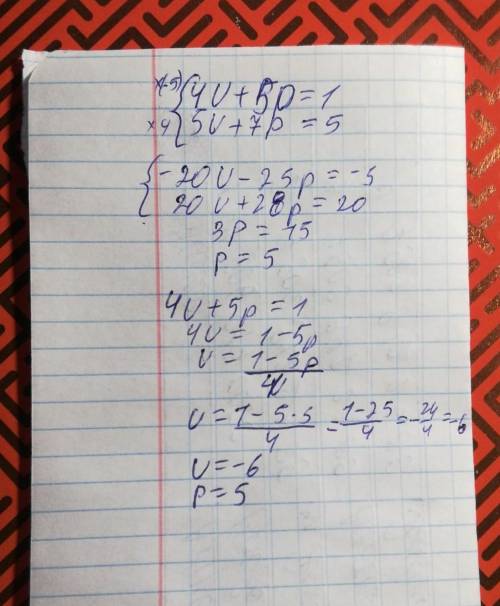 ×(-5) { 4v + 5p = 1
×4 { 5v + 7p = 5
{ -20v - 25p = -5
20v + 28p = 20
3p = 15
p = 5
4v + 5p = 1
4v = 1 - 5p
v = (1 - 5p)/4
v = (1 - 5·5)/4 = (1 - 25)/4 = -24/4 = -6
v = -6
p = 5